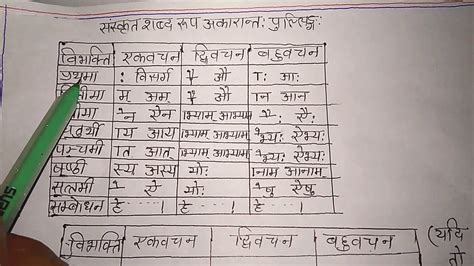 संस्कृत शब्द रूप अकारान्तः पुल्लिङ्गः
विभक्ति एकवचन द्विवचन बहुवचन
प्रथमा : विसर्ग ौ औ ाः आः
म् अम् ौ औ ान आन
ेन ऐन ाभ्याम् आभ्याम् ैः ऐः
ाय आय ाभ्याम् आभ्याम् ेभ्यः ऐभ्यः
पञ्चमी ात् आत् ाभ्याम् आभ्याम् ेभ्यः ऐभ्यः
षष्ठी स्य अस्य योः ानाम आनाम्
सप्तमी े ऐ योः ेषु ऐषु
सम्बोधन हे ....! हे ....! हे ....!
(यदि
विभक्ति एकवचन द्विवचन बहुवचन
तो